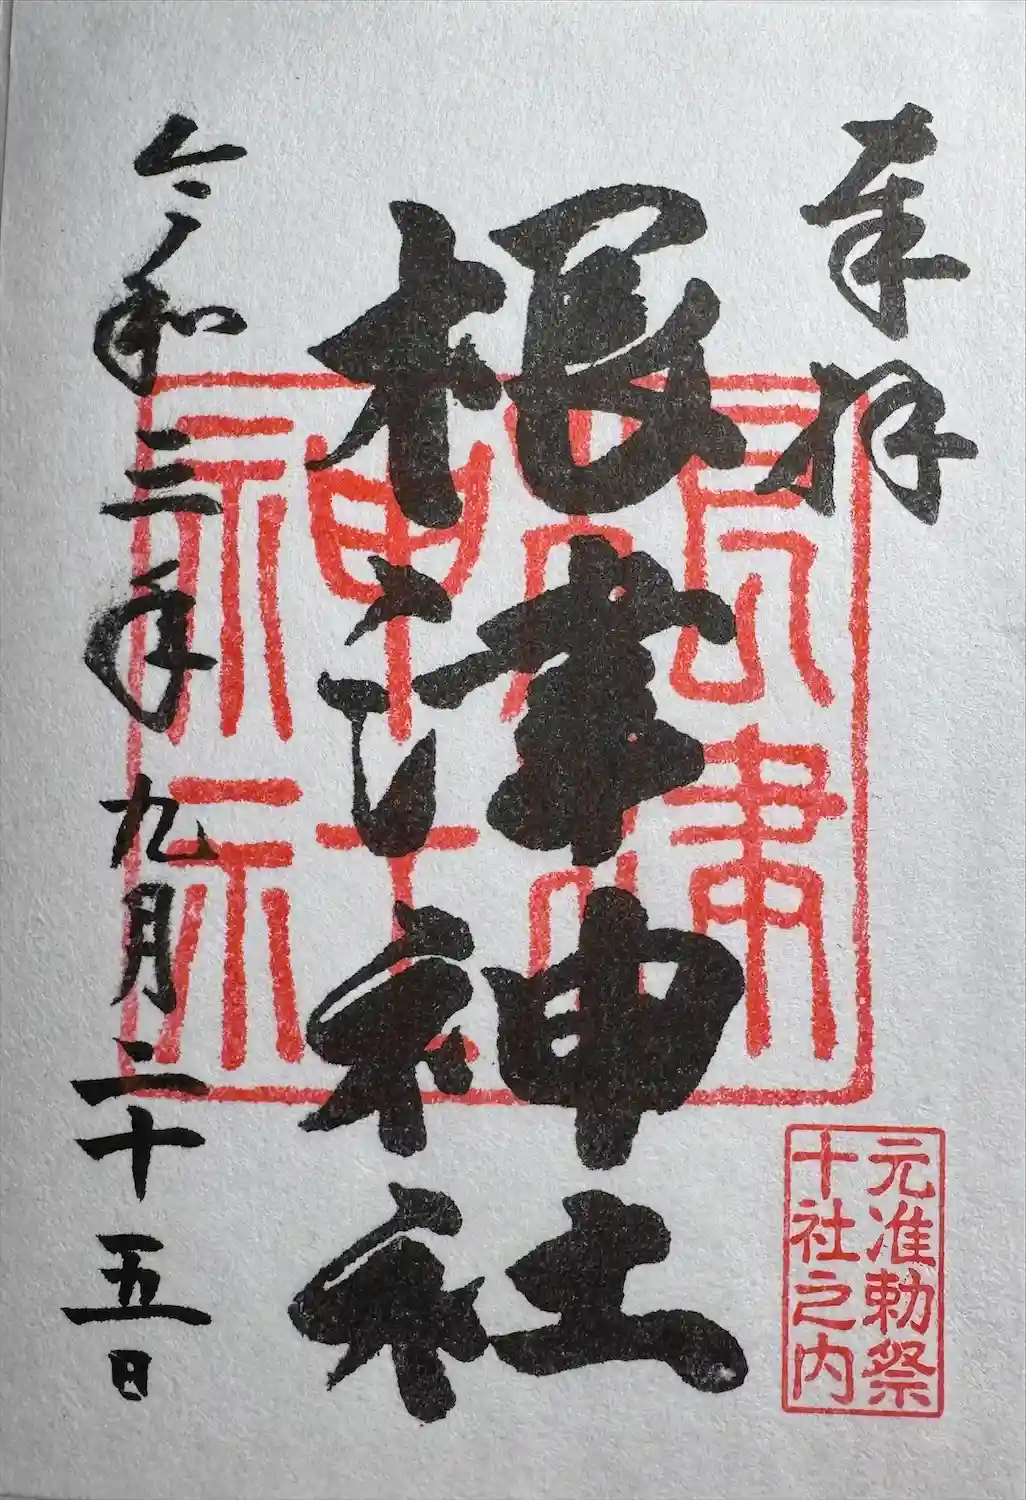 奉拝
根津神社
元准勅祭
十社之内
令和三年九月二十五日